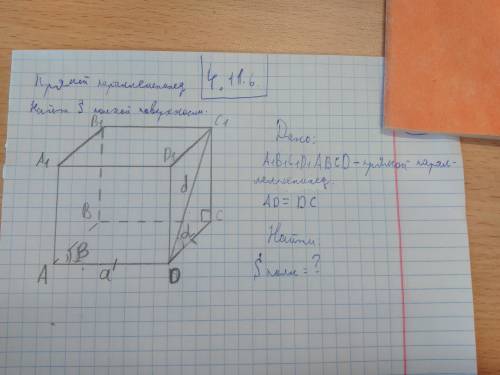 Прямой параллелепипед
4.11.б.
Найти S полной поверхности.
B1
C1
A1
D1
d
B
C
β
α
A
a
D
Дано:
A1B1C1D1ABCD - прямой парал-
лелепипед.
AD = DC
Найти
Sполн = ?